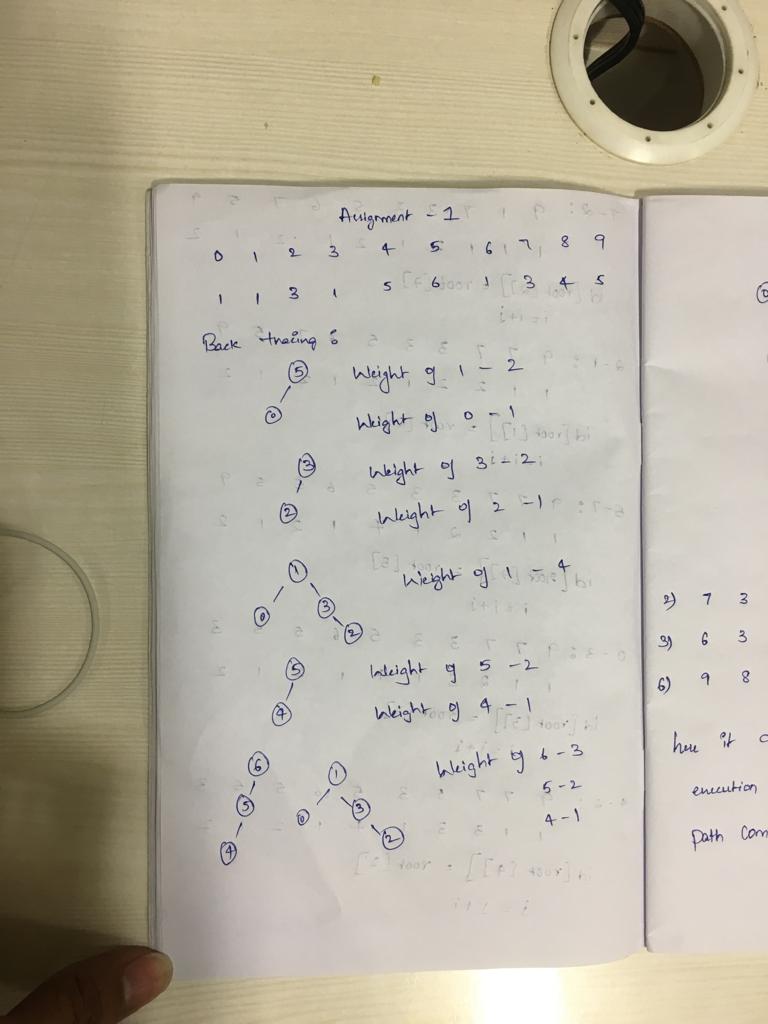 Assignment - 1
0 1 2 3 4 5 6 7 8 9
1 1 3 1 5 6 1 3 4 5
Back tracing :
5 Weight of 1 - 2
0 Weight of 0 - 1
3 Weight of 3 - 2
2 Weight of 2 - 1
1 Weight of 1 - 4
0 3
2
5 Weight of 5 - 2
4 Weight of 4 - 1
6 1 Weight of 6 - 3
5 0 3 5 - 2
4 2 4 - 1
2) 7 3
3) 6 3
6) 9 8
here it
execution
path com